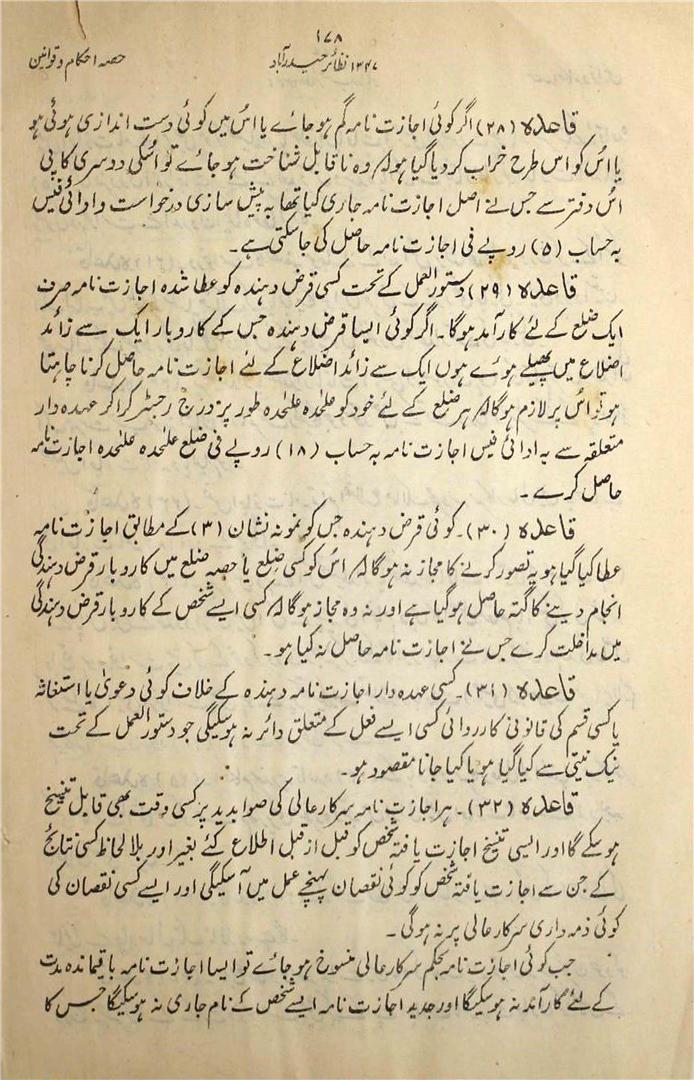 ۱۷۸
۱۳۴۷ نظائر حیدرآباد
حصہ احکام و قوانین
قاعدہ (۲۸) اگر کوئی اجازت نامہ گم ہو جائے یا اس میں کوئی دست اندازی ہوئی ہو
یا اس کو اس طرح خراب کر دیا گیا ہو کہ وہ ناقابل شناخت ہو جائے تو اسکی دوسری کاپی
اس دفتر سے جس نے اصل اجازت نامہ جاری کیا تھا بہ پیش سازی درخواست و ادائی فیس
بہ حساب (۵) روپے فی اجازت نامہ حاصل کی جاسکتی ہے۔
قاعدہ (۲۹) دستور العمل کے تحت کسی قرض دہندہ کو عطا شدہ اجازت نامہ صرف
ایک ضلع کے لئے کارآمد ہوگا۔ اگر کوئی ایسا قرض دہندہ جس کے کاروبار ایک سے زائد
اضلاع میں پھیلے ہوئے ہوں ایک سے زائد اضلاع کے لئے اجازت نامہ حاصل کرنا چاہتا
ہو تو اس پر لازم ہوگا کہ ہر ضلع کے لئے خود کو علحدہ علحدہ طور پر درج رجسٹر کرا کر عہدہ دار
متعلقہ سے بہ ادائی فیس اجازت نامہ بہ حساب (۱۸) روپے فی ضلع علحدہ علحدہ اجازت نامہ
حاصل کرے۔
قاعدہ (۳۰)۔ کوئی قرض دہندہ جس کو نمونہ نشان (۳) کے مطابق اجازت نامہ
عطا کیا گیا ہو یہ تصور کرنے کا مجاز نہ ہوگا کہ اس کو کسی ضلع یا حصہ ضلع میں کاروبار قرض دہندگی
انجام دینے کا گتہ حاصل ہوگیا ہے اور نہ وہ مجاز ہوگا کہ کسی ایسے شخص کے کاروبار قرض دہندگی
میں مداخلت کرے جس نے اجازت نامہ حاصل نہ کیا ہو۔
قاعدہ (۳۱)۔ کسی عہدہ دار اجازت نامہ دہندہ کے خلاف کوئی دعویٰ یا استغاثہ
یا کسی قسم کی قانونی کارروائی کسی ایسے فعل کے متعلق دائر نہ ہوسکیگی جو دستور العمل کے تحت
نیک نیتی سے کیا گیا ہو یا کیا جانا مقصود ہو۔
قاعدہ (۳۲)۔ ہر اجازت نامہ سرکار عالی کی صوابدید پر کسی وقت بھی قابل تنسیخ
ہو سکے گا اور ایسی تنسیخ اجازت یافتہ شخص کو قبل از قبل اطلاع کئے بغیر اور بلا لحاظ کسی نتائج
کے جن سے اجازت یافتہ شخص کو کوئی نقصان پہنچے عمل میں آسکیگی اور ایسے کسی نقصان کی
کوئی ذمہ داری سرکار عالی پر نہ ہوگی۔
جب کوئی اجازت نامہ بحکم سرکار عالی منسوخ ہو جائے تو ایسا اجازت نامہ باقیماندہ مدت
کے لئے کارآمد نہ ہوسکیگا اور جدید اجازت نامہ ایسے شخص کے نام جاری نہ ہوسکیگا جس کا